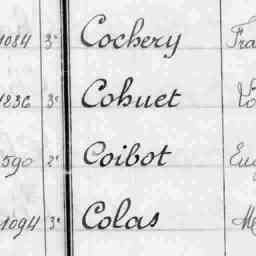 1084 3e Cochery Fra
1836 3e Cohuet
590 2e Coibot Eug
1094 3e Colas